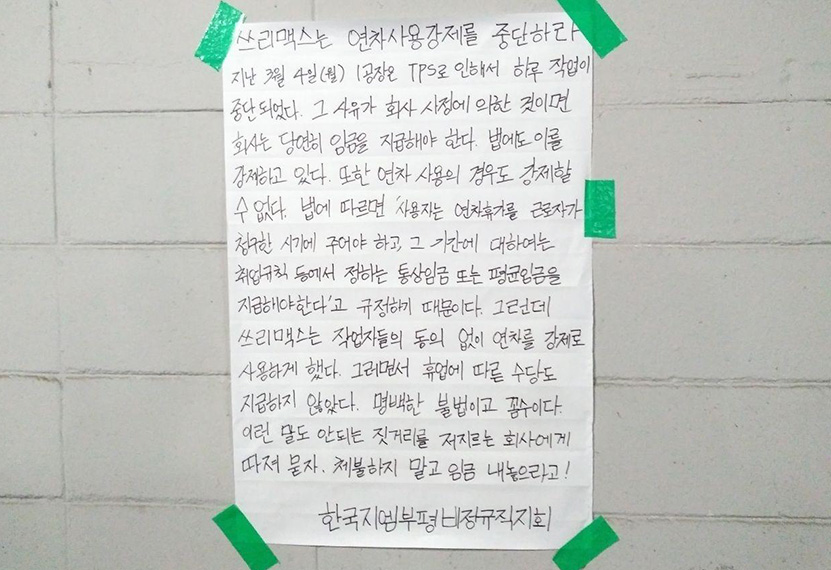 쓰리맥스는 연차사용강제를 중단하라
지난 3월 4일(월) 1공장은 TPS로 인해서 하루 작업이
중단되었다. 그 사유가 회사 사정에 의한 것이면
회사는 당연히 임금을 지급해야 한다. 법에도 이를
강제하고 있다. 또한 연차 사용의 경우도 강제할
수 없다. 법에 따르면 '사용자는 연차휴가를 근로자가
청구한 시기에 주어야 하고, 그 기간에 대하여는
취업규칙 등에서 정하는 통상임금 또는 평균임금을
지급해야한다'고 규정하기 때문이다. 그런데
쓰리맥스는 작업자들의 동의 없이 연차를 강제로
사용하게 했다. 그러면서 휴업에 따른 수당도
지급하지 않았다. 명백한 불법이고 꼼수이다.
이런 말도 안되는 짓거리를 저지르는 회사에게
따져 묻자. 체불하지 말고 임금 내놓으라고!
한국지엠부평비정규직지회